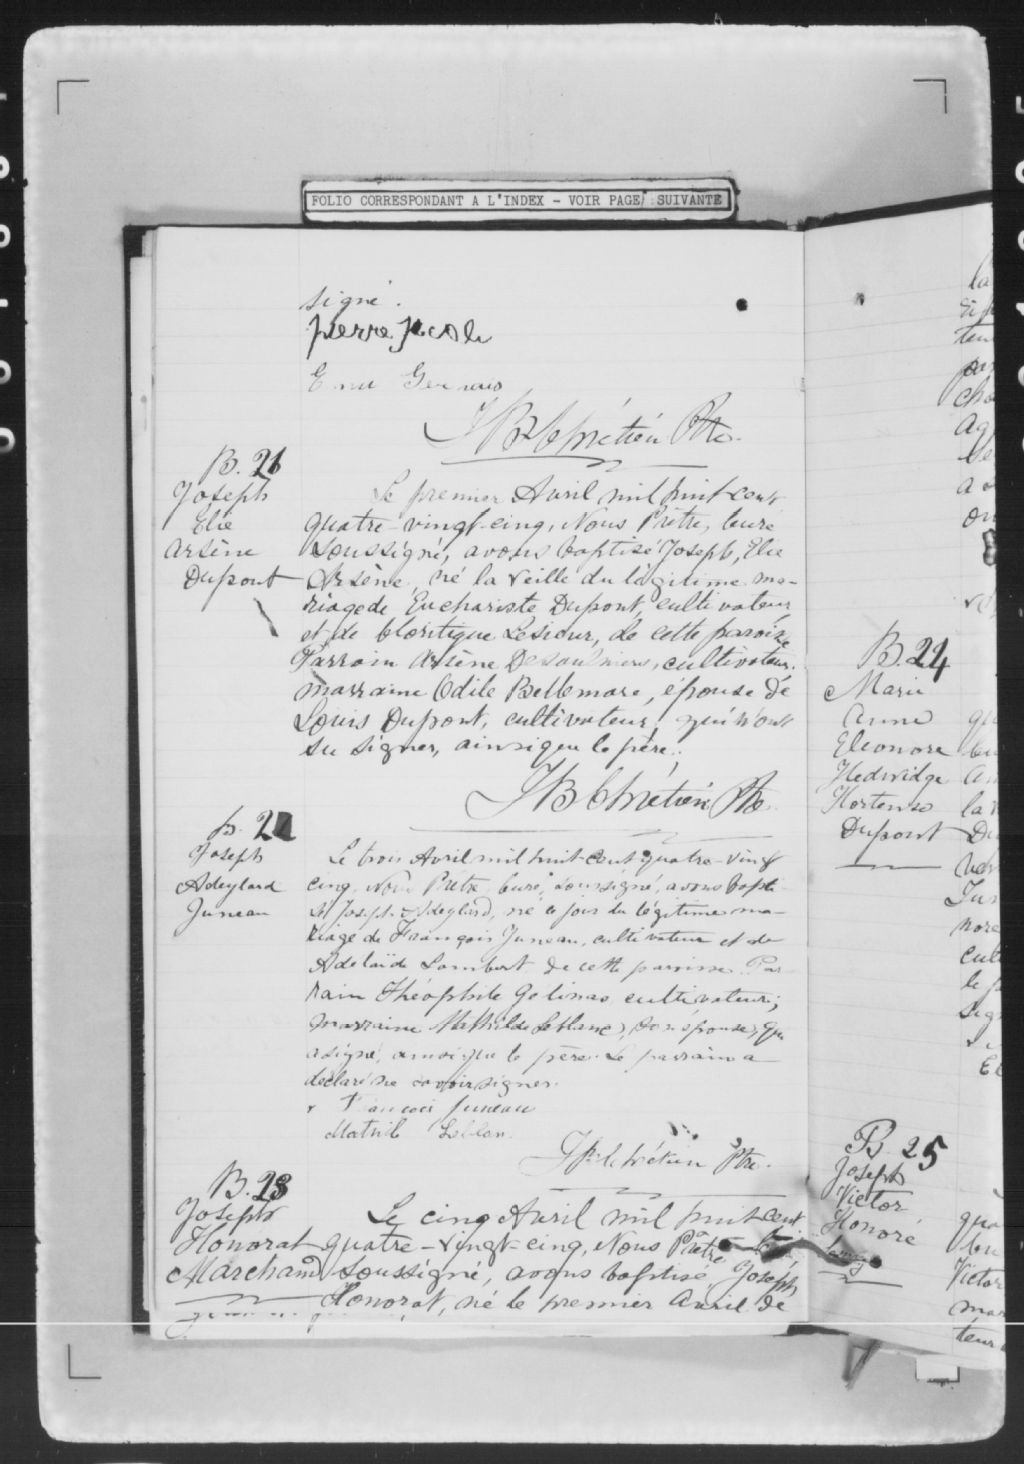 FOLIO CORRESPONDANT A L'INDEX - VOIR PAGE SUIVANTE
signé.
pierre jacob
Gervais
JB Chrétien Ptre.
B. 21
Joseph
Elie
Arsène
Dupont
Le premier Avril mil huit cent
quatre-vingt-cinq, Nous Prêtre, Curé
soussigné, avons baptisé Joseph, Elie
Arsène, né la veille du légitime ma-
riage de Euchariste Dupont, cultivateur,
et de Lesieur, de cette paroisse
Parrain Arsène Desaulniers, cultivateur.
marraine Odile Bellemare, épouse de
Louis Dupont, cultivateur, qui n'ont
su signer, ainsi que le père.
JB Chrétien Ptre.
B. 22
Joseph
Adeylard
Juneau
Le trois Avril mil huit cent quatre-vingt
cinq, Nous Prêtre, Curé, soussigné, avons bapti
sé Joseph Adeylard, né ce jour du légitime ma-
riage de François Juneau, cultivateur et de
Adelaïde Lambert de cette paroisse. Par
rain Théophile Gelinas, cultivateur;
marraine Mathilde Leblanc, son épouse, qui
a signé, ainsi que le père. Le parrain a
déclaré ne savoir signer.
Francois Juneau
Matril Leblan
JB Chrétien Ptre.
B. 23
Joseph
Honorat
Marchand
Le cinq Avril mil huit cent
quatre-vingt-cinq, Nous Prêtre
soussigné, avons baptisé, Joseph,
Honorat, né le premier Avril de
B. 24
Marie
Anne
Eleonore
Hedwidge
Hortense
Dupont
B. 25
Joseph
Victor
Honoré